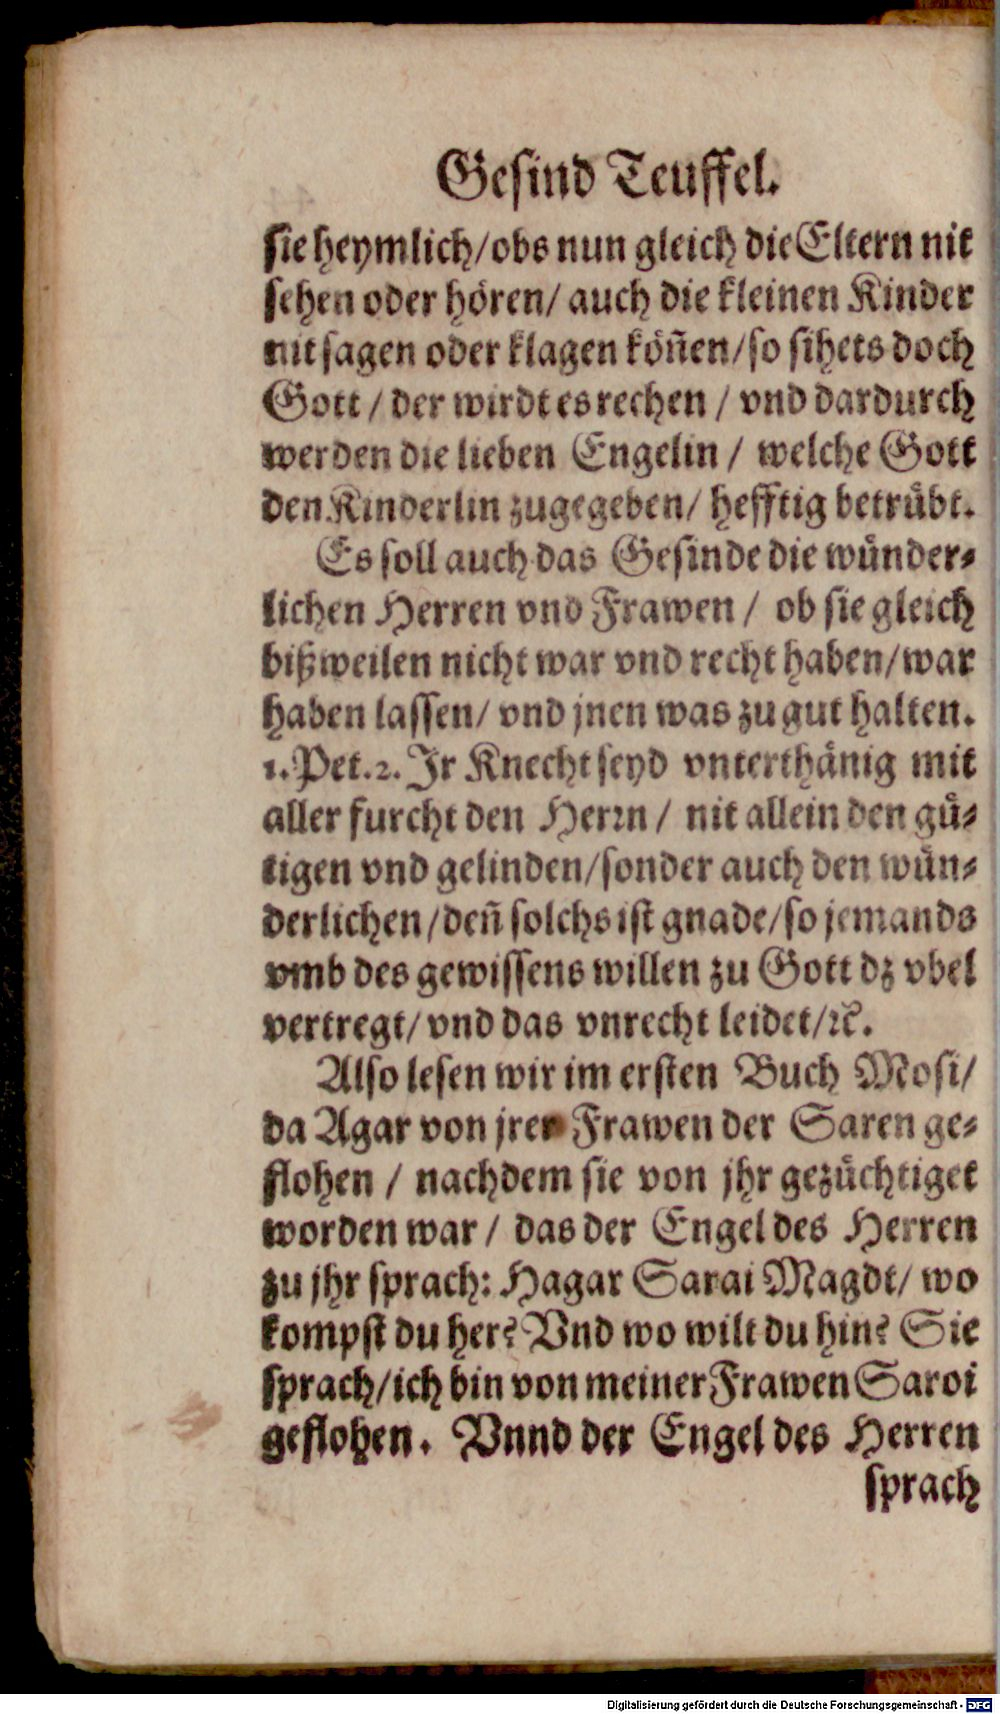 Gesind Teuffel.
sie heymlich/obs nun gleich die Eltern nit
sehen oder hören/ auch die kleinen Kinder
nit sagen oder klagen köñen/so sihets doch
Gott / der wirdt es rechen / vnd dardurch
werden die lieben Engelin / welche Gott
den Kinderlin zugegeben/ hefftig betrübt.
Es soll auch das Gesinde die wünder-
lichen Herren vnd Frawen / ob sie gleich
bißweilen nicht war vnd recht haben/war
haben lassen/ vnd jnen was zu gut halten.
1. Pet. 2. Jr Knecht seyd vnterthänig mit
aller furcht den Herrn / nit allein den gü-
tigen vnd gelinden/sonder auch den wün-
derlichen/deñ solchs ist gnade/so jemands
vmb des gewissens willen zu Gott dz vbel
vertregt/ vnd das vnrecht leidet/ꝛc̃.
Also lesen wir im ersten Buch Mosi/
da Agar von jrer Frawen der Saren ge-
flohen / nachdem sie von jhr gezüchtiget
worden war / das der Engel des Herren
zu jhr sprach: Hagar Sarai Magdt/ wo
kompst du her? Vnd wo wilt du hin? Sie
sprach/ich bin von meiner Frawen Saroi
geflohen. Vnnd der Engel des Herren
sprach
Digitalisierung gefördert durch die Deutsche Forschungsgemeinschaft - DFG